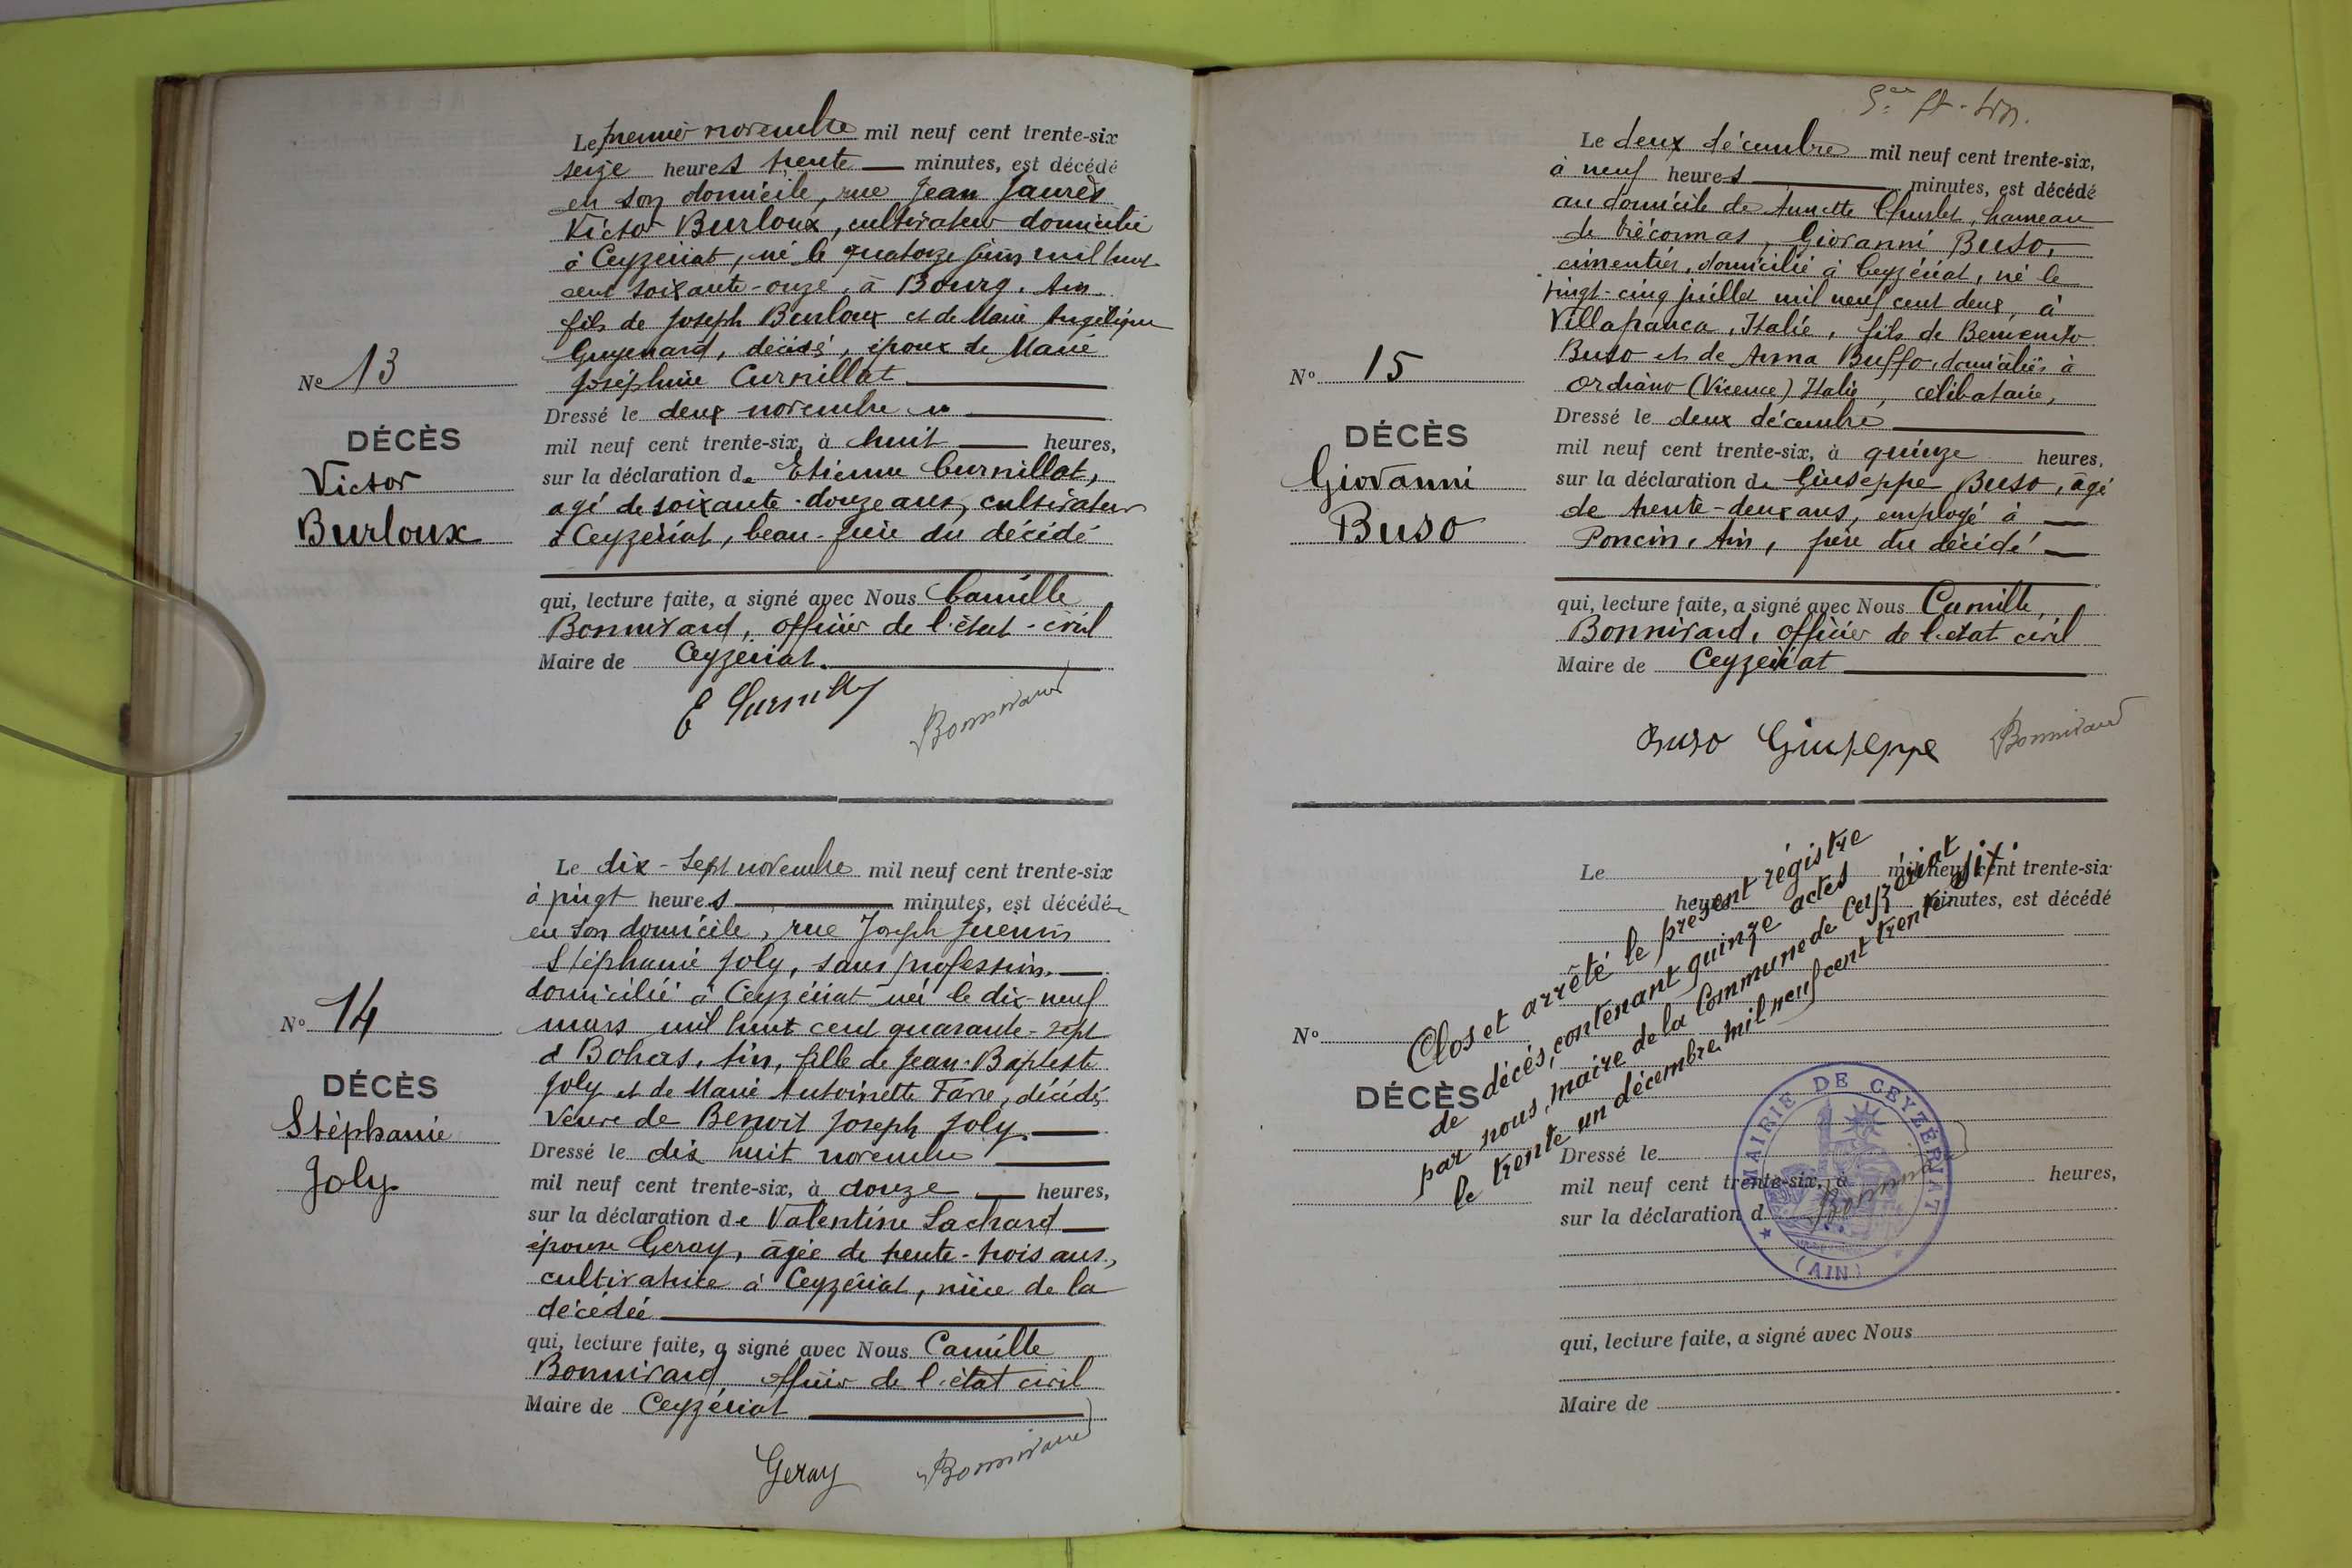 Le premier novembre mil neuf cent trente-six
seize heures trente minutes, est décédé
en son domicile, rue Jean Jaurès
Victor Burloux, cultivateur domicilié
à Ceyzériat, né le quatorze juin mil huit
cent soixante-onze, à Bourg, Ain
fils de Joseph Burloux et de Marie Angélique
Guyenard, décédés, époux de Marie
Joséphine Curnillat
No 13
DÉCÈS
Victor
Burloux
Dressé le deux novembre
mil neuf cent trente-six, à huit heures,
sur la déclaration de Etienne Curnillat,
agé de soixante-douze ans, cultivateur
à Ceyzériat, beau-frère du décédé
qui, lecture faite, a signé avec Nous Camille
Bonnivard, officier de l'état-civil
Maire de Ceyzériat.
E Curnillat Bonnivard
Le dix-sept novembre mil neuf cent trente-six
à vingt heures minutes, est décédée
en son domicile, rue Joseph
Stéphanie Joly, sans profession.
domiciliée à Ceyzériat née le dix-neuf
mars mil huit cent quarante-sept
à Bohas, Ain, fille de Jean-Baptiste
Joly et de Marie Antoinette Favre, décédés
Veuve de Benoit Joseph Joly.
No 14
DÉCÈS
Stéphanie
Joly
Dressé le dix huit novembre
mil neuf cent trente-six, à douze heures,
sur la déclaration de Valentine Lachard
épouse Geray, âgée de trente-trois ans,
cultivatrice à Ceyzériat, nièce de la
décédée
qui, lecture faite, a signé avec Nous Camille
Bonnivard officier de l'état civil
Maire de Ceyzériat
Geray Bonnivard
Le deux décembre mil neuf cent trente-six,
à neuf heures minutes, est décédé
au domicile de Annette Churlet, hameau
de Giovanni Buso,
cimentier, domicilié à Ceyzériat, né le
vingt-cinq juillet mil neuf cent deux, à
Villafranca, Italie, fils de Benvenuto
Buso et de Anna Buffo, domiciliés à
Ordiano (Vicence) Italie, célibataire,
No 15
DÉCÈS
Giovanni
Buso
Dressé le deux décembre
mil neuf cent trente-six, à quinze heures,
sur la déclaration de Giuseppe Buso, âgé
de trente-deux ans, employé à
Poncin, Ain, frère du décédé
qui, lecture faite, a signé avec Nous Camille
Bonnivard, officier de l'état civil
Maire de Ceyzériat
Buso Giuseppe Bonnivard
Le mil neuf cent trente-six
heures minutes, est décédé
Clos et arrêté le présent régistre
de décès, contenant quinze actes
par nous, maire de la Commune de Ceyzériat
le trente un décembre mil neuf cent trente six.
No
DÉCÈS
MAIRIE DE CEYZÉRIAT
(AIN)
Bonnivard
Dressé le
mil neuf cent trente-six, à heures,
sur la déclaration d
qui, lecture faite, a signé avec Nous
Maire de